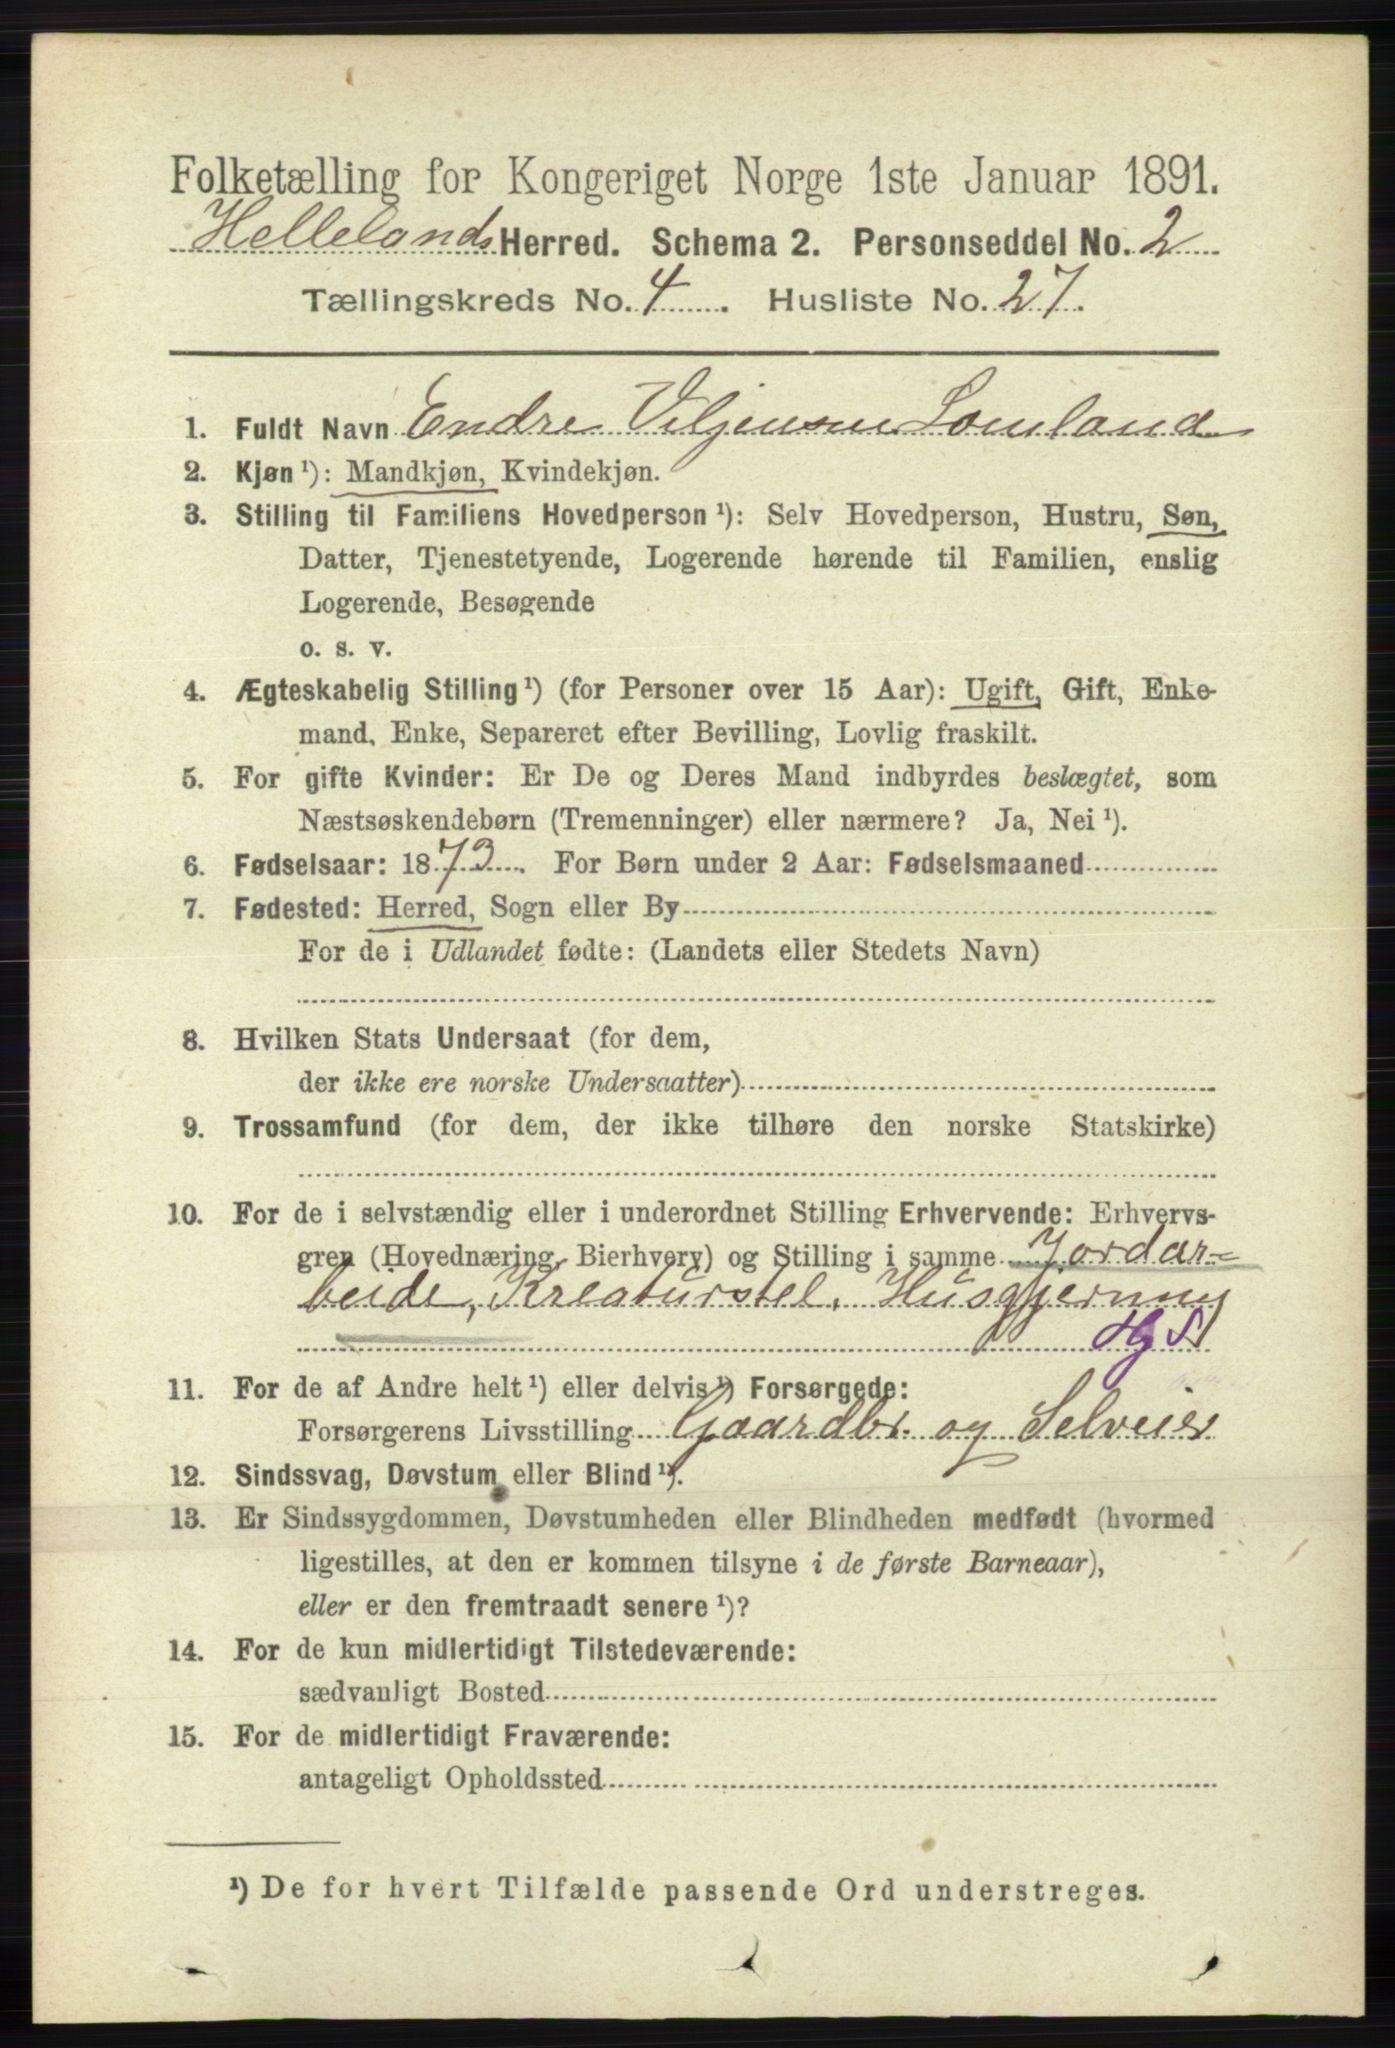 Folketælling for Kongeriget Norge 1ste Januar 1891.
Hellelands Herred. Schema 2. Personseddel No. 2
Tællingskreds No. 4. Husliste No. 27.
1. Fuldt Navn Endre Viljensen Lomland
2. Kjøn ¹): Mandkjøn, Kvindekjøn.
3. Stilling til Familiens Hovedperson ¹): Selv Hovedperson, Hustru, Søn,
Datter, Tjenestetyende, Logerende hørende til Familien, enslig
Logerende, Besøgende
o. s. v.
4. Ægteskabelig Stilling ¹) (for Personer over 15 Aar): Ugift, Gift, Enke-
mand, Enke, Separeret efter Bevilling, Lovlig fraskilt.
5. For gifte Kvinder: Er De og Deres Mand indbyrdes beslægtet, som
Næstsøskendebørn (Tremenninger) eller nærmere? Ja, Nei ¹).
6. Fødselsaar: 1873. For Børn under 2 Aar: Fødselsmaaned
7. Fødested: Herred, Sogn eller By
For de i Udlandet fødte: (Landets eller Stedets Navn)
8. Hvilken Stats Undersaat (for dem,
der ikke ere norske Undersaatter)
9. Trossamfund (for dem, der ikke tilhøre den norske Statskirke)
10. For de i selvstændig eller i underordnet Stilling Erhvervende: Erhvervs-
gren (Hovednæring, Bierhverv) og Stilling i samme Jordar-
beide, Kreaturstel, Husgjerning
11. For de af Andre helt ¹) eller delvis ¹) Forsørgede:
Forsørgerens Livsstilling Gaardbr. og Selveier
12. Sindssvag, Døvstum eller Blind ¹).
13. Er Sindssygdommen, Døvstumheden eller Blindheden medfødt (hvormed
ligestilles, at den er kommen tilsyne i de første Barneaar),
eller er den fremtraadt senere ¹)?
14. For de kun midlertidigt Tilstedeværende:
sædvanligt Bosted
15. For de midlertidigt Fraværende:
antageligt Opholdssted
¹) De for hvert Tilfælde passende Ord understreges.